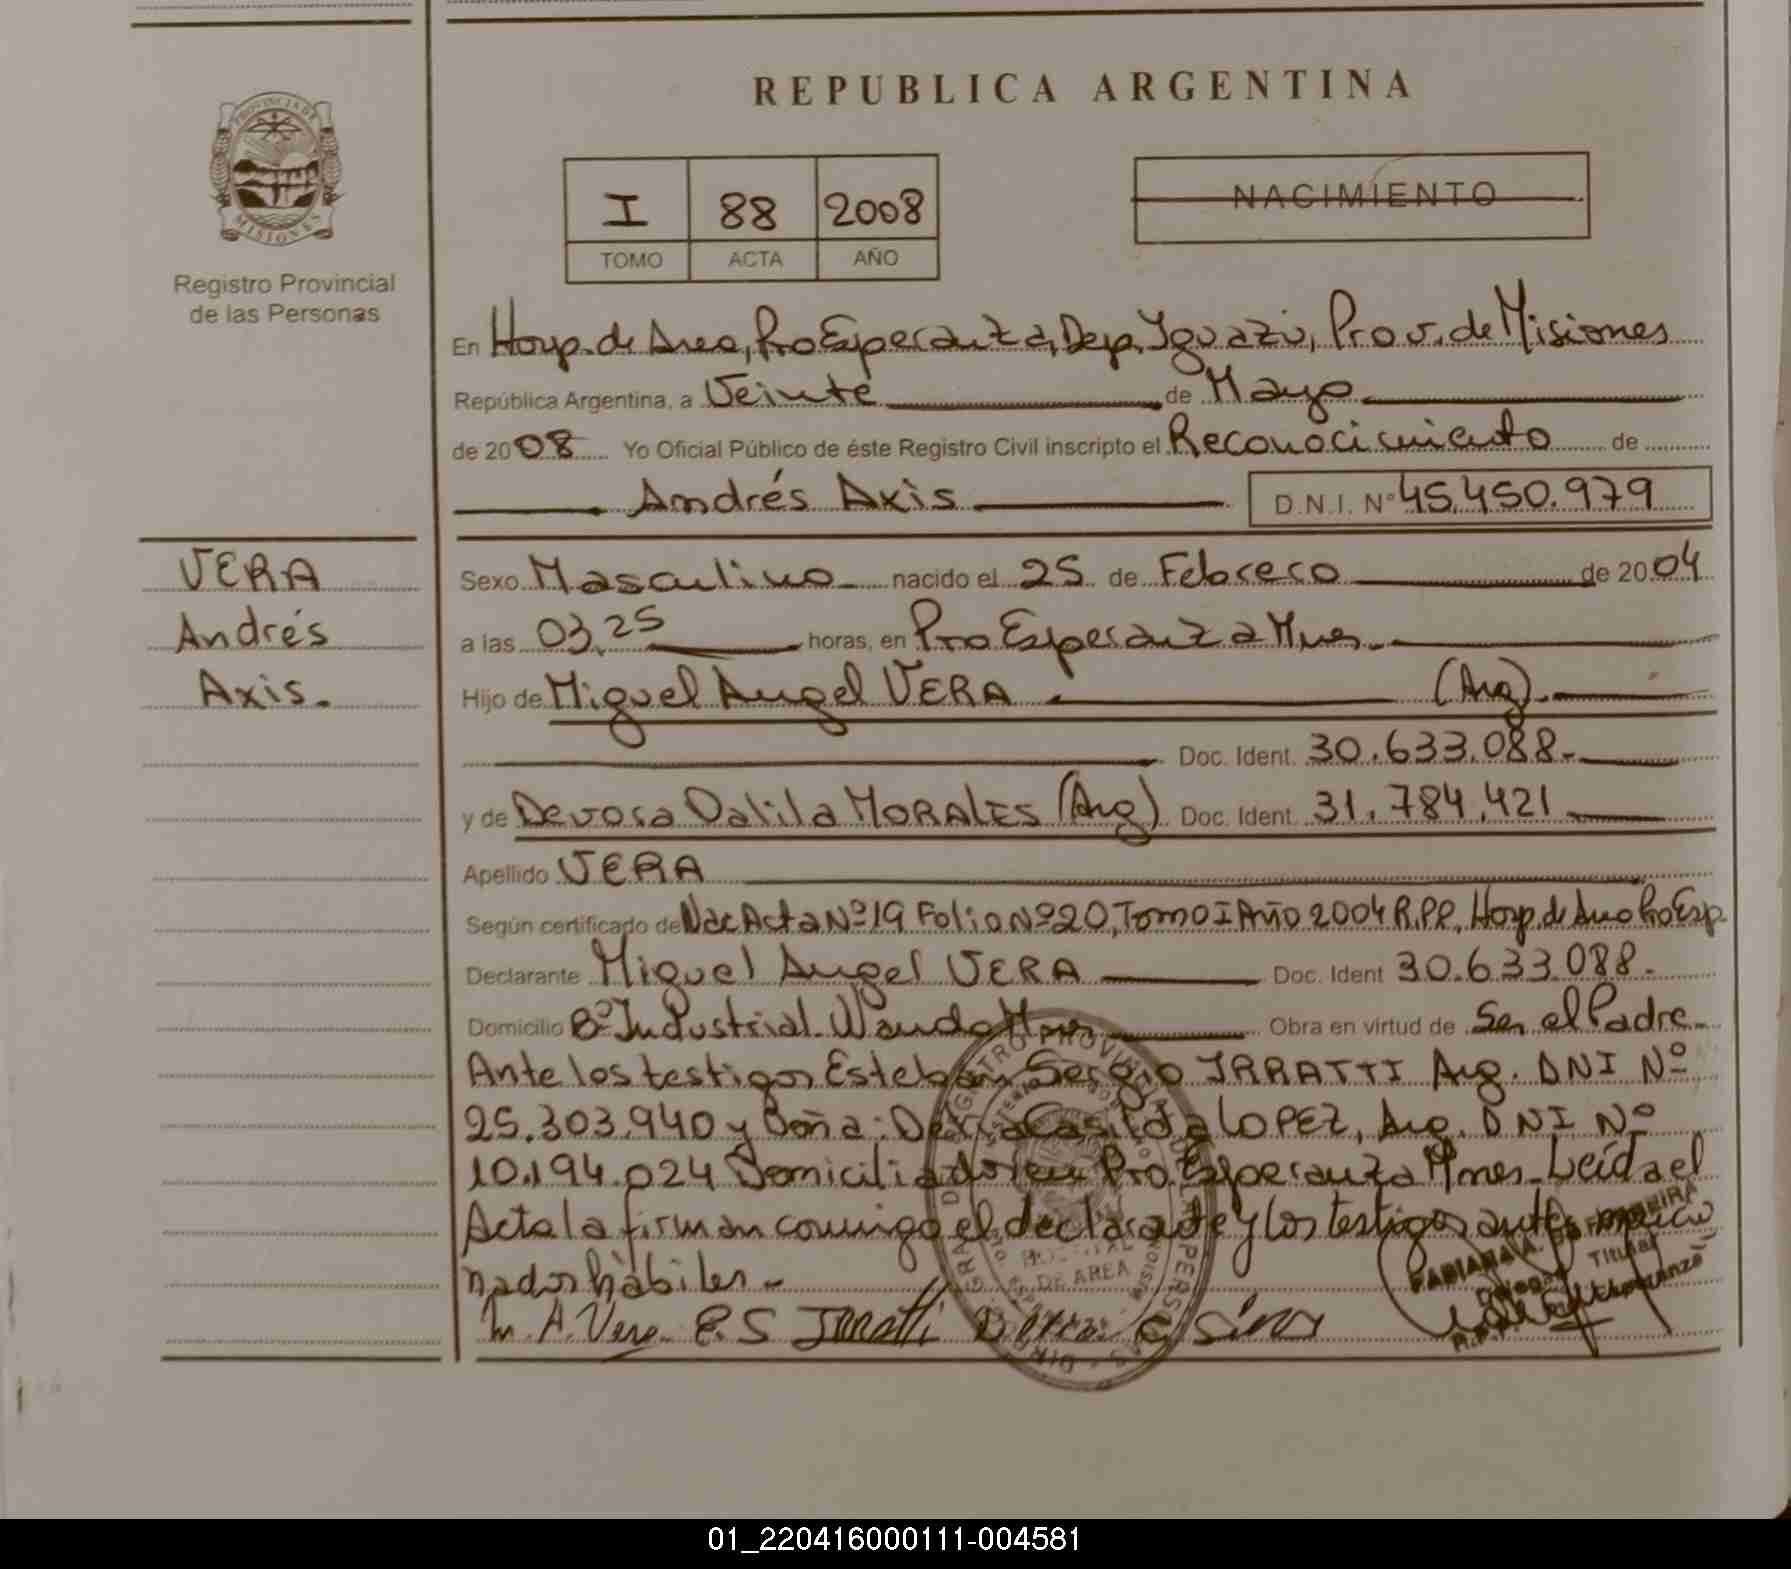 REPUBLICA ARGENTINA
PROVINCIA DE
MISIONES
Registro Provincial
de las Personas
I 88 2008
TOMO ACTA AÑO
NACIMIENTO
En Hosp. de Area, Pto Esperanza, Dep. Iguazú, Prov. de Misiones
República Argentina, a Veinte de Mayo
de 2008 Yo Oficial Público de éste Registro Civil inscripto el Reconocimiento de
Andrés Axis D.N.I. Nº 45.450.979
VERA
Andrés
Axis.
Sexo Masculino nacido el 25 de Febrero de 2004
a las 03,25 horas, en Pto Esperanza Mnes.
Hijo de Miguel Angel VERA (Arg).
Doc. Ident. 30.633.088-
y de Devora Dalila MORALES (Arg) Doc. Ident. 31.784.421
Apellido VERA
Según certificado de Nac Acta Nº 19 Folio Nº 20, Tomo I Año 2004 R.P.P. Hosp. de Area Pto Esp.
Declarante Miguel Angel VERA Doc. Ident 30.633.088-
Domicilio Bº Industrial Wanda Mnes Obra en virtud de Ser el Padre-
Ante los testigos Esteban Sergio IRRATTI Arg. DNI Nº
25.303.940 y Doña: Casilda LOPEZ, Arg. DNI Nº
10.194.024 Domiciliados en Pto. Esperanza Mnes- Leída el
Acta la firman conmigo el declarante y los testigos antes mencio
nados hábiles-
M. A. Vera E. S Irratti
FABIANA A. FERREIRA
Titular
HOSPITAL
DE AREA
01_220416000111-004581